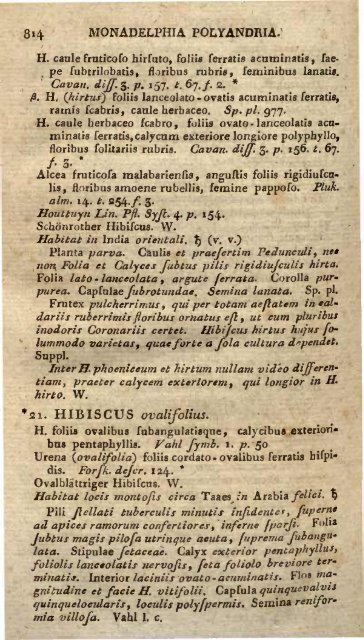 814 MONADELPHIA POLYANDRIA.
H. caule fruticoſo hirſuto, foliis ſerratis acuminatis, ſae-
pe ſubtrilobatis, floribus rubris, ſeminibus lanatis.
Cavan. diſſ. 3. p. 157. t. 67. f. 2. *
β. H. (hirtus) foliis lanceolato-ovatis acuminatis ſerratis,
ramis ſcabris, caule herbaceo. Sp. pl. 977.
H. caule herbaceo ſcabro, foliis ovato-lanceolatis acu-
minatis ſerratis, calycum exteriore longiore polyphyllo,
floribus ſolitariis rubris. Cavan. diſſ. 3. p. 156. t. 67.
f. 3. *
Alcea fruticoſa malabarienſis, anguſtis foliis rigidiuſcu-
lis, floribus amoene rubellis, ſemine pappoſo. Pluk.
alm. 14. t. 254. f. 3.
Houttuyn Lin. Pfl. Syſt. 4. p. 154.
Schönrother Hibiſcus. W.
Habitat in India orientali. ♄ (v. v.)
Planta parva. Caulis et praeſertim Pedunculi, nec
non Folia et Calyces ſubtus pilis rigidiuſculis hirta.
Folia lato-lanceolata, argute ſerrata. Corolla pur-
purea. Capſulae ſubrotundae. Semina lanata. Sp. pl.
Frutex pulcherrimus, qui per totam aeſtatem in cal-
dariis ruberrimis floribus ornatus eſt, ut cum pluribus
inodoris Coronariis certet. Hibiſcus hirtus hujus ſo-
lummodo varietas, quae forte a ſola cultura dependet.
Suppl.
Inter H. phoeniceum et hirtum nullam video differen-
tiam, praeter calycem exteriorem, qui longior in H.
hirto. W.
*21. HIBISCUS ovalifolius.
H. foliis ovalibus ſubangulatisque, calycibus exteriori-
bus pentaphyllis. Vahl ſymb. 1. p. 50
Urena (ovalifolia) foliis cordato-ovalibus ſerratis hiſpi-
dis. Forſk. deſcr. 124. *
Ovalblättriger Hibiſcus. W.
Habitat locis montoſis circa Taaes in Arabia felici. ♄
Pili ſtellati tuberculis minutis inſidentes, ſuperne
ad apices ramorum confertiores, inferne ſparſi. Folia
ſubtus magis piloſa utrinque acuta, ſuprema ſubangu-
lata. Stipulae ſetaceae. Calyx exterior pentaphyllus,
foliolis lanceolatis nervoſis, ſeta foliolo breviore ter-
minatis. Interior laciniis ovato-acuminatis. Flos ma-
gnitudine et facie H. vitifolii. Capſula quinquevalvis
quinquelocularis, loculis polyſpermis. Semina renifor-
mia villoſa. Vahl l. c.